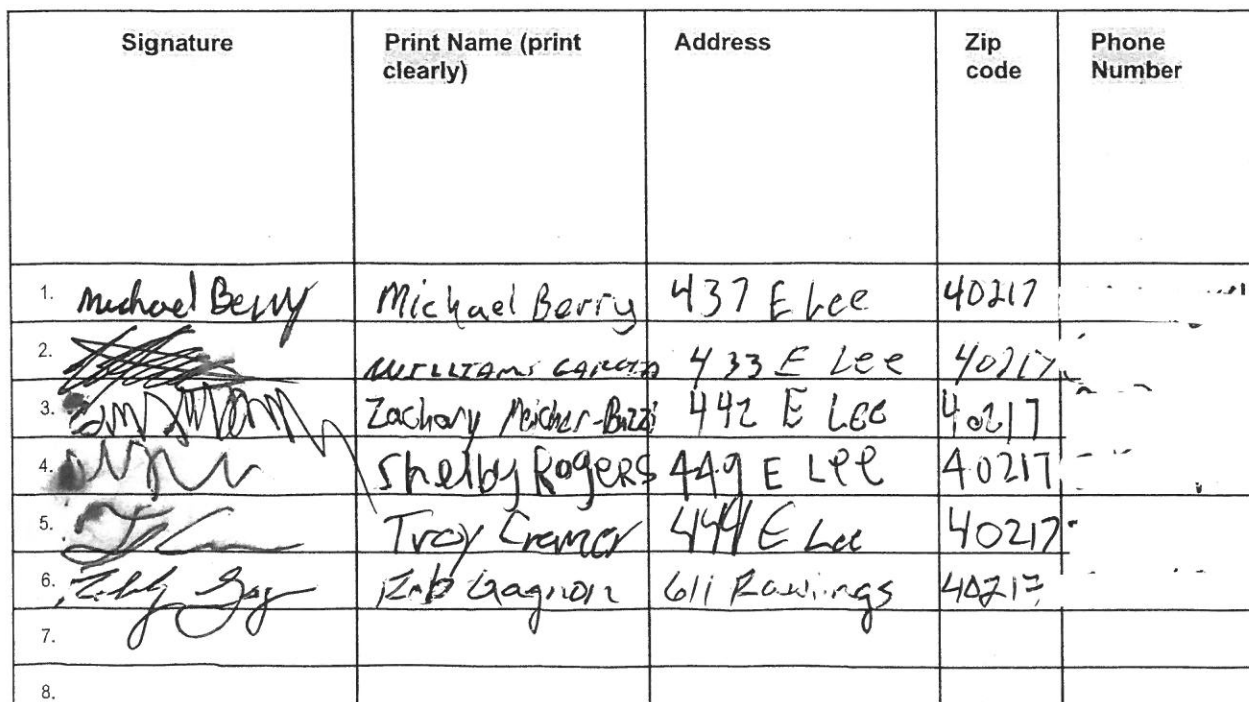 Signature Print Name (print clearly) Address Zip code Phone Number
1. Michael Berry Michael Berry 437 E Lee 40217
2. WILLIAMS GARCIA 433 E Lee 40217
3. Zachary 442 E Lee 40217
4. Shelby Rogers 449 E Lee 40217
5. Troy Cremer 444 E Lee 40217
6. Gagnon 611 Rawlings 40217
7.
8.